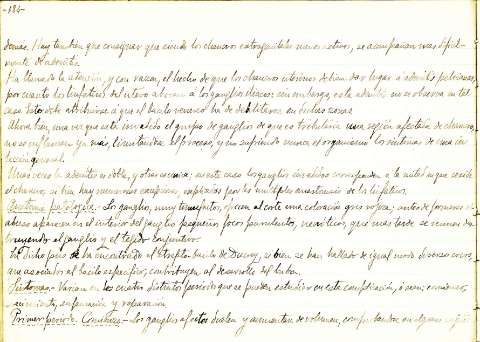 -184-
demas. Hay tambien que consignar que siendo los chancros extragenitales menos activos, se acompañan mas dificil-
mente de adenitis.
Ha llamado la atención, y con razon, el hecho de que los chancros uterinos debian dar lugar a adenitis pelvianas,
por cuanto los linfaticos del utero abocan a los ganglios iliacos: sin embargo, esta adenitis no se observa en tal
caso. Esto debe atribuirse a que el bacilo venereo ha de debilitarse en dichas zonas
Ahora bien, una vez que esta invadido el grupo de ganglios de que es tributaria una región afectada de chancro,
no se influencian ya mas, limitandose el proceso, y no sufriendo nunca el organismo los sintomas de una in-
fección general.
Unas veces la adenitis es doble, y otras cruzada; en este caso los ganglios invadidos corresponden a la mitad en que reside
el chancro, si bien hay numerosas excepciones, explicables por las multiples anastomosis de los linfaticos.
Anatomia patologica.- Los ganglios, muy tumefactos, ofrecen al corte una coloración gris rojiza; antes de formarse el
absceso aparecen en el interior del ganglio pequeños focos purulentos, necróticos, que mas tarde se reunen des-
truyendo al ganglio y el tejido conjuntivo.
En dicho pus se ha encontrado el Strepto-bacilo de Ducrey, si bien se han hallado de igual modo diversos cocos,
que asociados al bacilo especifico, contribuyen al desarrollo del bubon.
Sintomas.- Varian en los cuatro distintos periodos que se pueden estudiar en esta complicación, o sean: comienzo,
crecimiento, supuración y reparación.
Primer periodo. Comienzo.- Los ganglios afectos duelen y aumentan de volumen, comprobandose en algunas